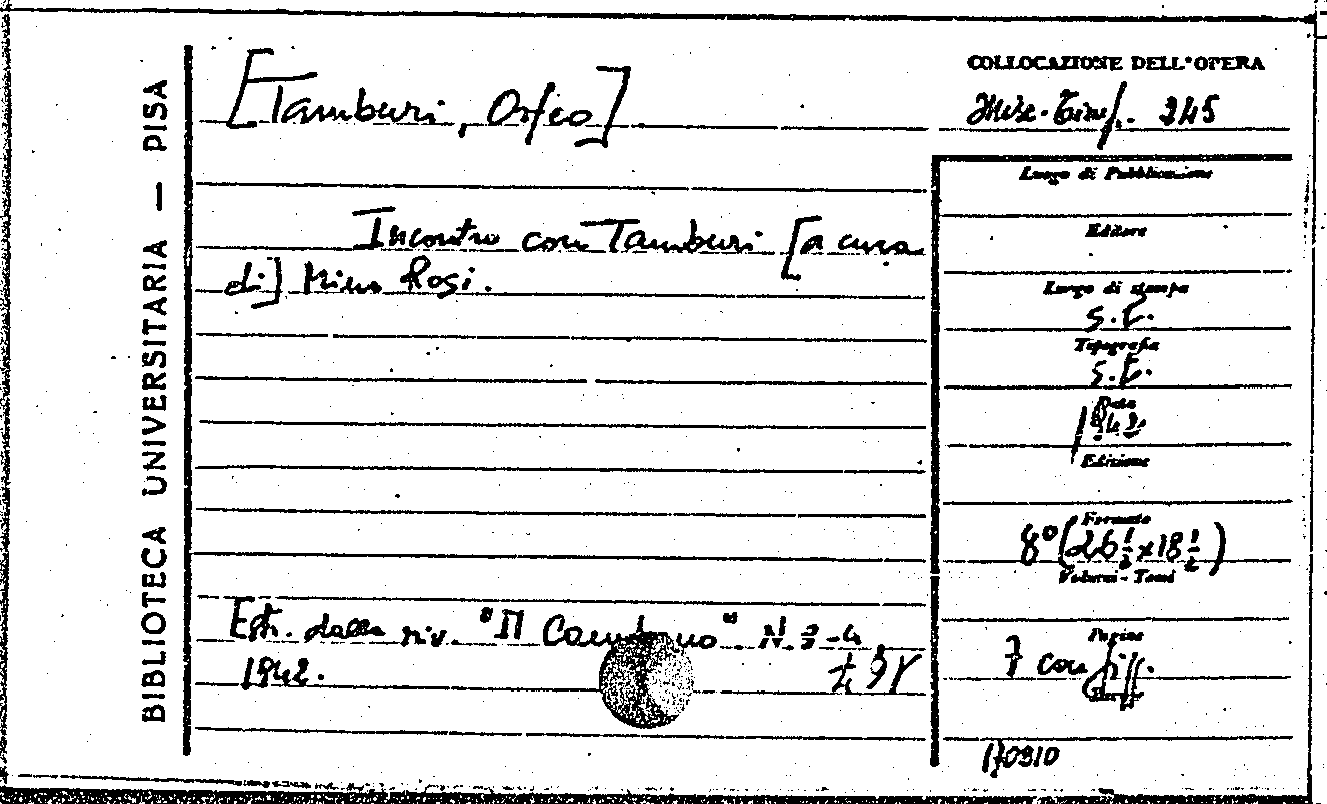 BIBLIOTECA UNIVERSITARIA — PISA
[Tamburi, Orfeo]
Incontro con Tamburi [a cura
di] Mino Rosi.
Estr. dalla riv. "Il N. 3-4
1942.
COLLOCAZIONE DELL'OPERA
Misc. 245
Luogo di Pubblicazione
Editore
Luogo di stampa
s.t.
Tipografia
s.t.
Data
1942
Edizione
Formato
8° (26 1/2 x 18 1/2)
Volumi - Tomi
Pagine
7 con ff.
170910